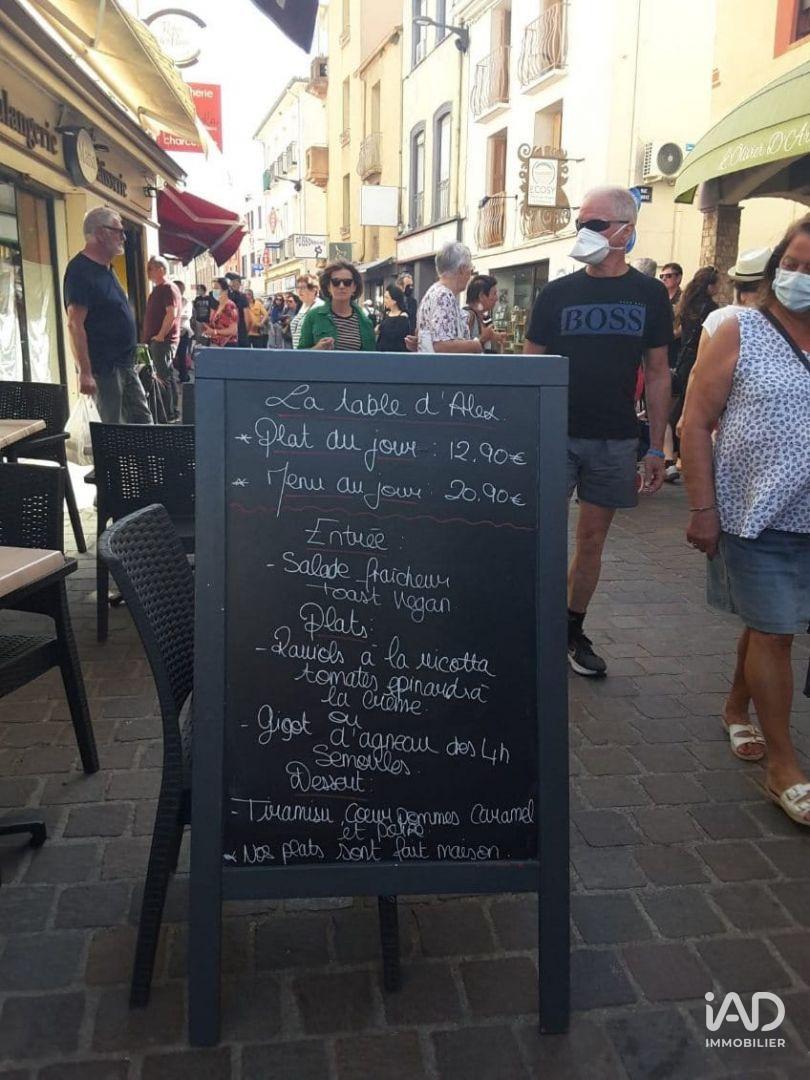 boulangerie
charcu
POISSO
ECOSY
L'Olivier D'A
BOSS
La table d'Alex.
* Plat du jour : 12,90€
* Menu du jour : 20,90€
Entrée :
- Salade fraicheur
toast vegan
Plats :
- Raviols à la ricotta
tomates épinards à
la crème.
ou
- Gigot d'agneau des 4h
Semoules.
Dessert :
- Tiramisu coeur pommes caramel
et
* Nos plats sont fait maison.
iAD
IMMOBILIER